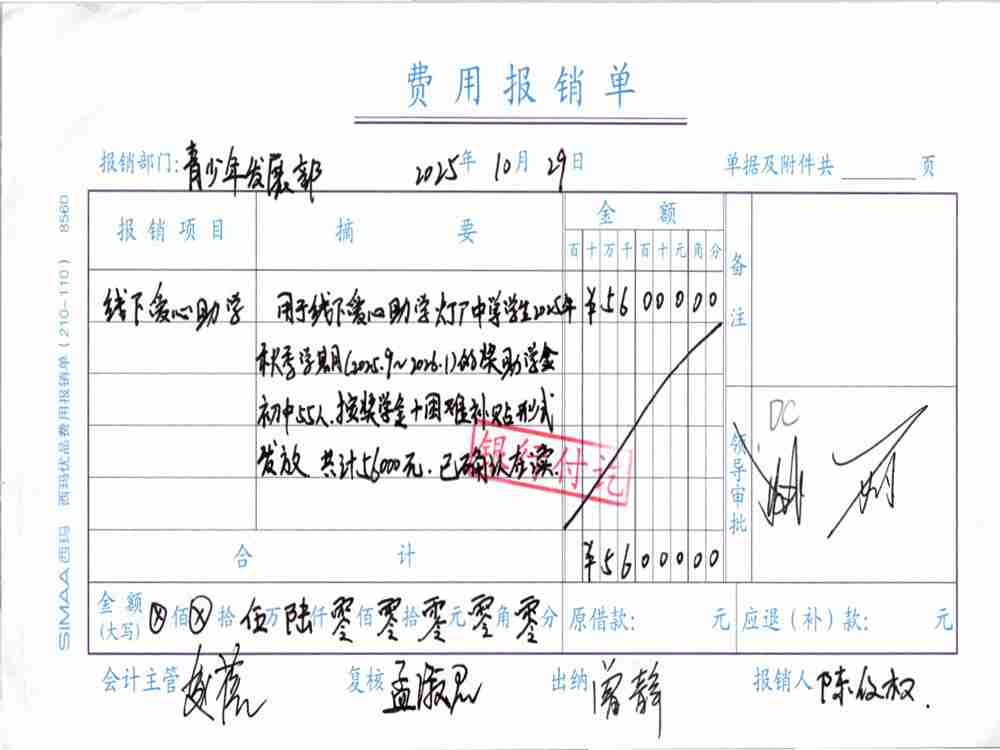 费用报销单
报销部门:青少年发展部 2025年10月29日 单据及附件共 页
报销项目 摘要 金额 备注
百十万千百十元角分
线下爱心助学 用于线下爱心助学灯厂中学学生2025年 ¥5600000
秋季学期(2025.9~2026.1)的奖助学金
初中55人.按奖学金+困难补贴形式
发放.共计56000元.已确认在读.
银行付讫
领导审批
DC
合计 ¥5600000
金额(大写) ⊗佰⊗拾伍万陆仟零佰零拾零元零角零分 原借款: 元 应退(补)款: 元
会计主管 复核 孟淑思 出纳 曾静 报销人 陈仪权.
SIMAA西玛 西玛优品费用报销单(210-110) 8560